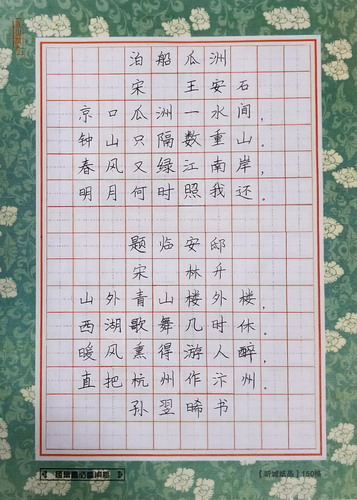 泊船瓜洲
宋 王安石
京口瓜洲一水间，
钟山只隔数重山。
春风又绿江南岸，
明月何时照我还。
题临安邸
宋 林升
山外青山楼外楼，
西湖歌舞几时休。
暖风熏得游人醉，
直把杭州作汴州。
孙翌晞书
【昕城纸品】150格